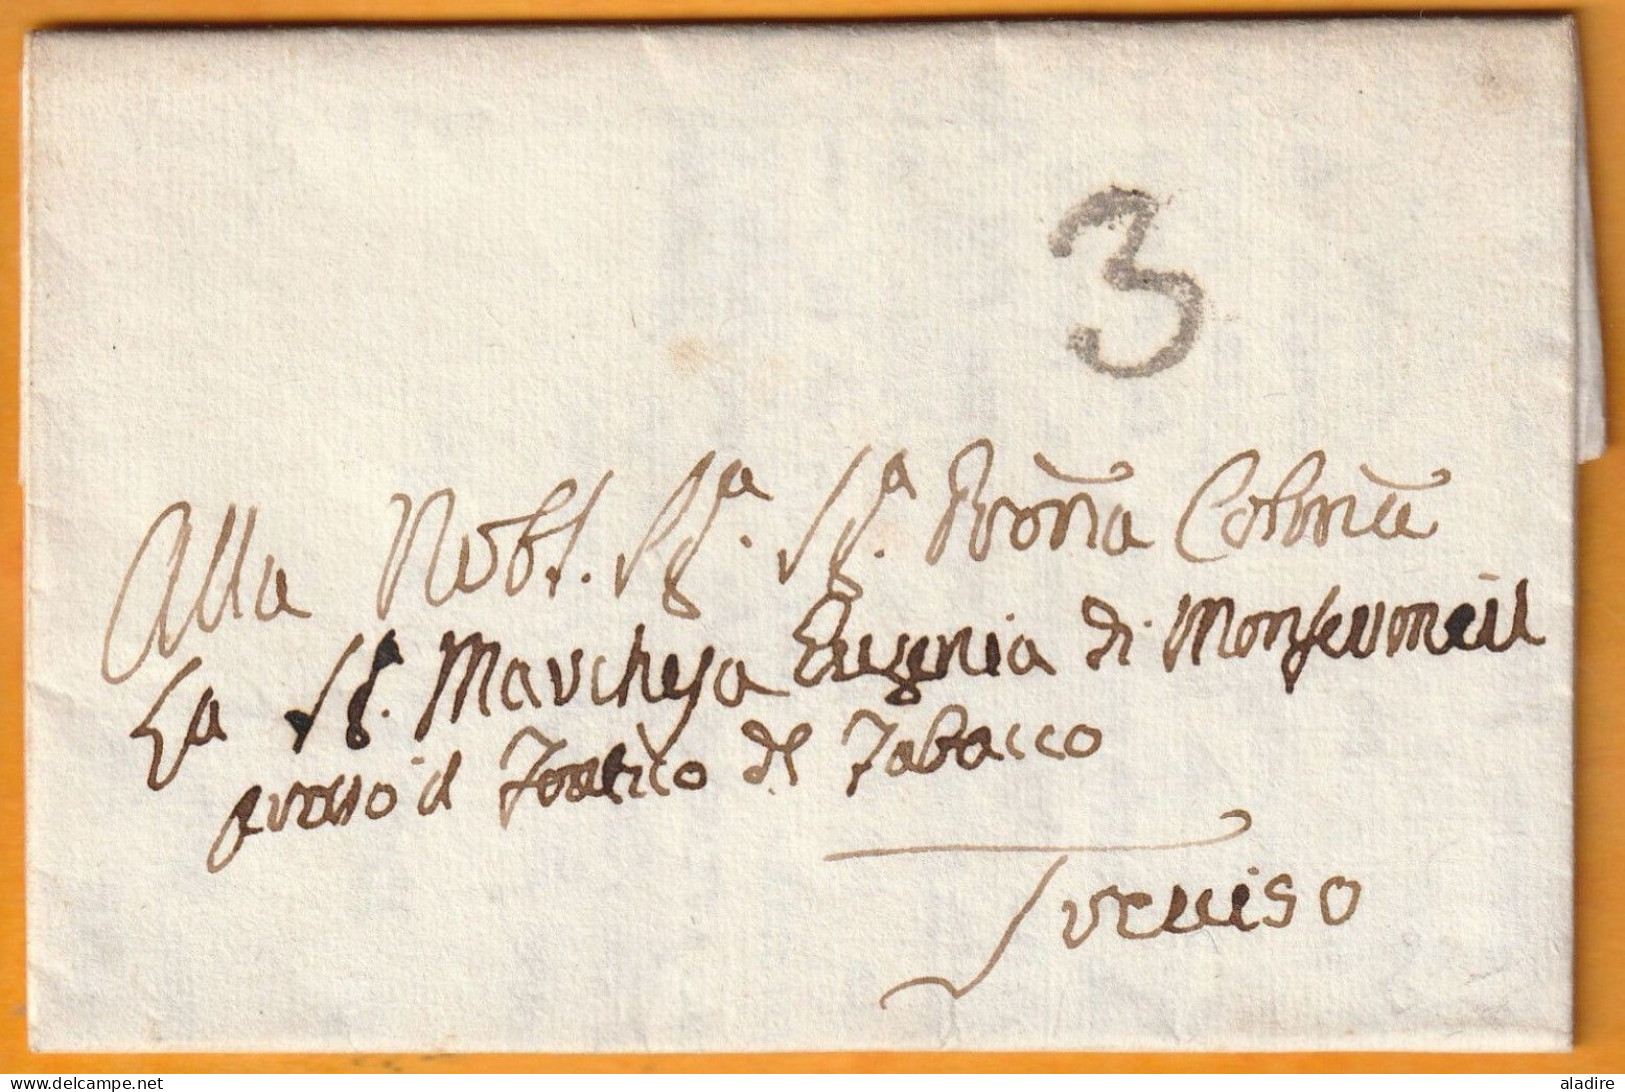 3
Alla Nobl. Sga. Sga. Prõna Colma
La Sga. Marchesa Eugenia di Monfermeil
presso il Fontico del Tabacco
Treviso
delcampe.net
aladire